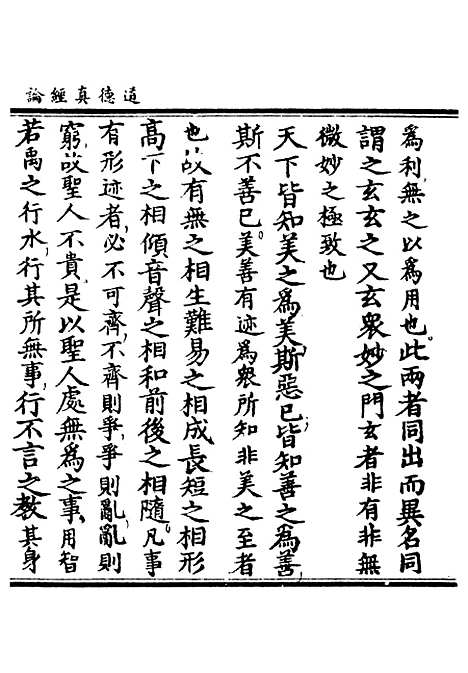 道德真經論
為利無之以為用也此兩者同出而異名同
謂之玄玄之又玄衆妙之門玄者非有非無
微妙之極致也
天下皆知美之為美斯惡已皆知善之為善
斯不善已美善有迹為衆所知非美之至者
也故有無之相生難易之相成長短之相形
高下之相傾音聲之相和前後之相隨凡事
有形迹者必不可齊不齊則爭爭則亂亂則
窮故聖人不貴是以聖人處無為之事用智
若禹之行水行其所無事行不言之教其身